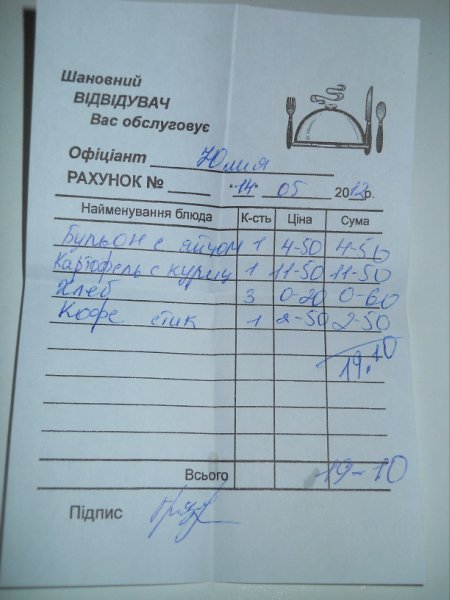 Шановний
ВІДВІДУВАЧ
Вас обслуговує
Офіціант Юлия
РАХУНОК № "14" 05 2012р.
Найменування блюда К-сть Ціна Сума
Бульон с яйцом 1 4-50 4-50
Картофель с куриц 1 11-50 11-50
Хлеб 3 0-20 0-60
Кофе стик 1 2-50 2-50
19.10
Всього 19-10
Підпис